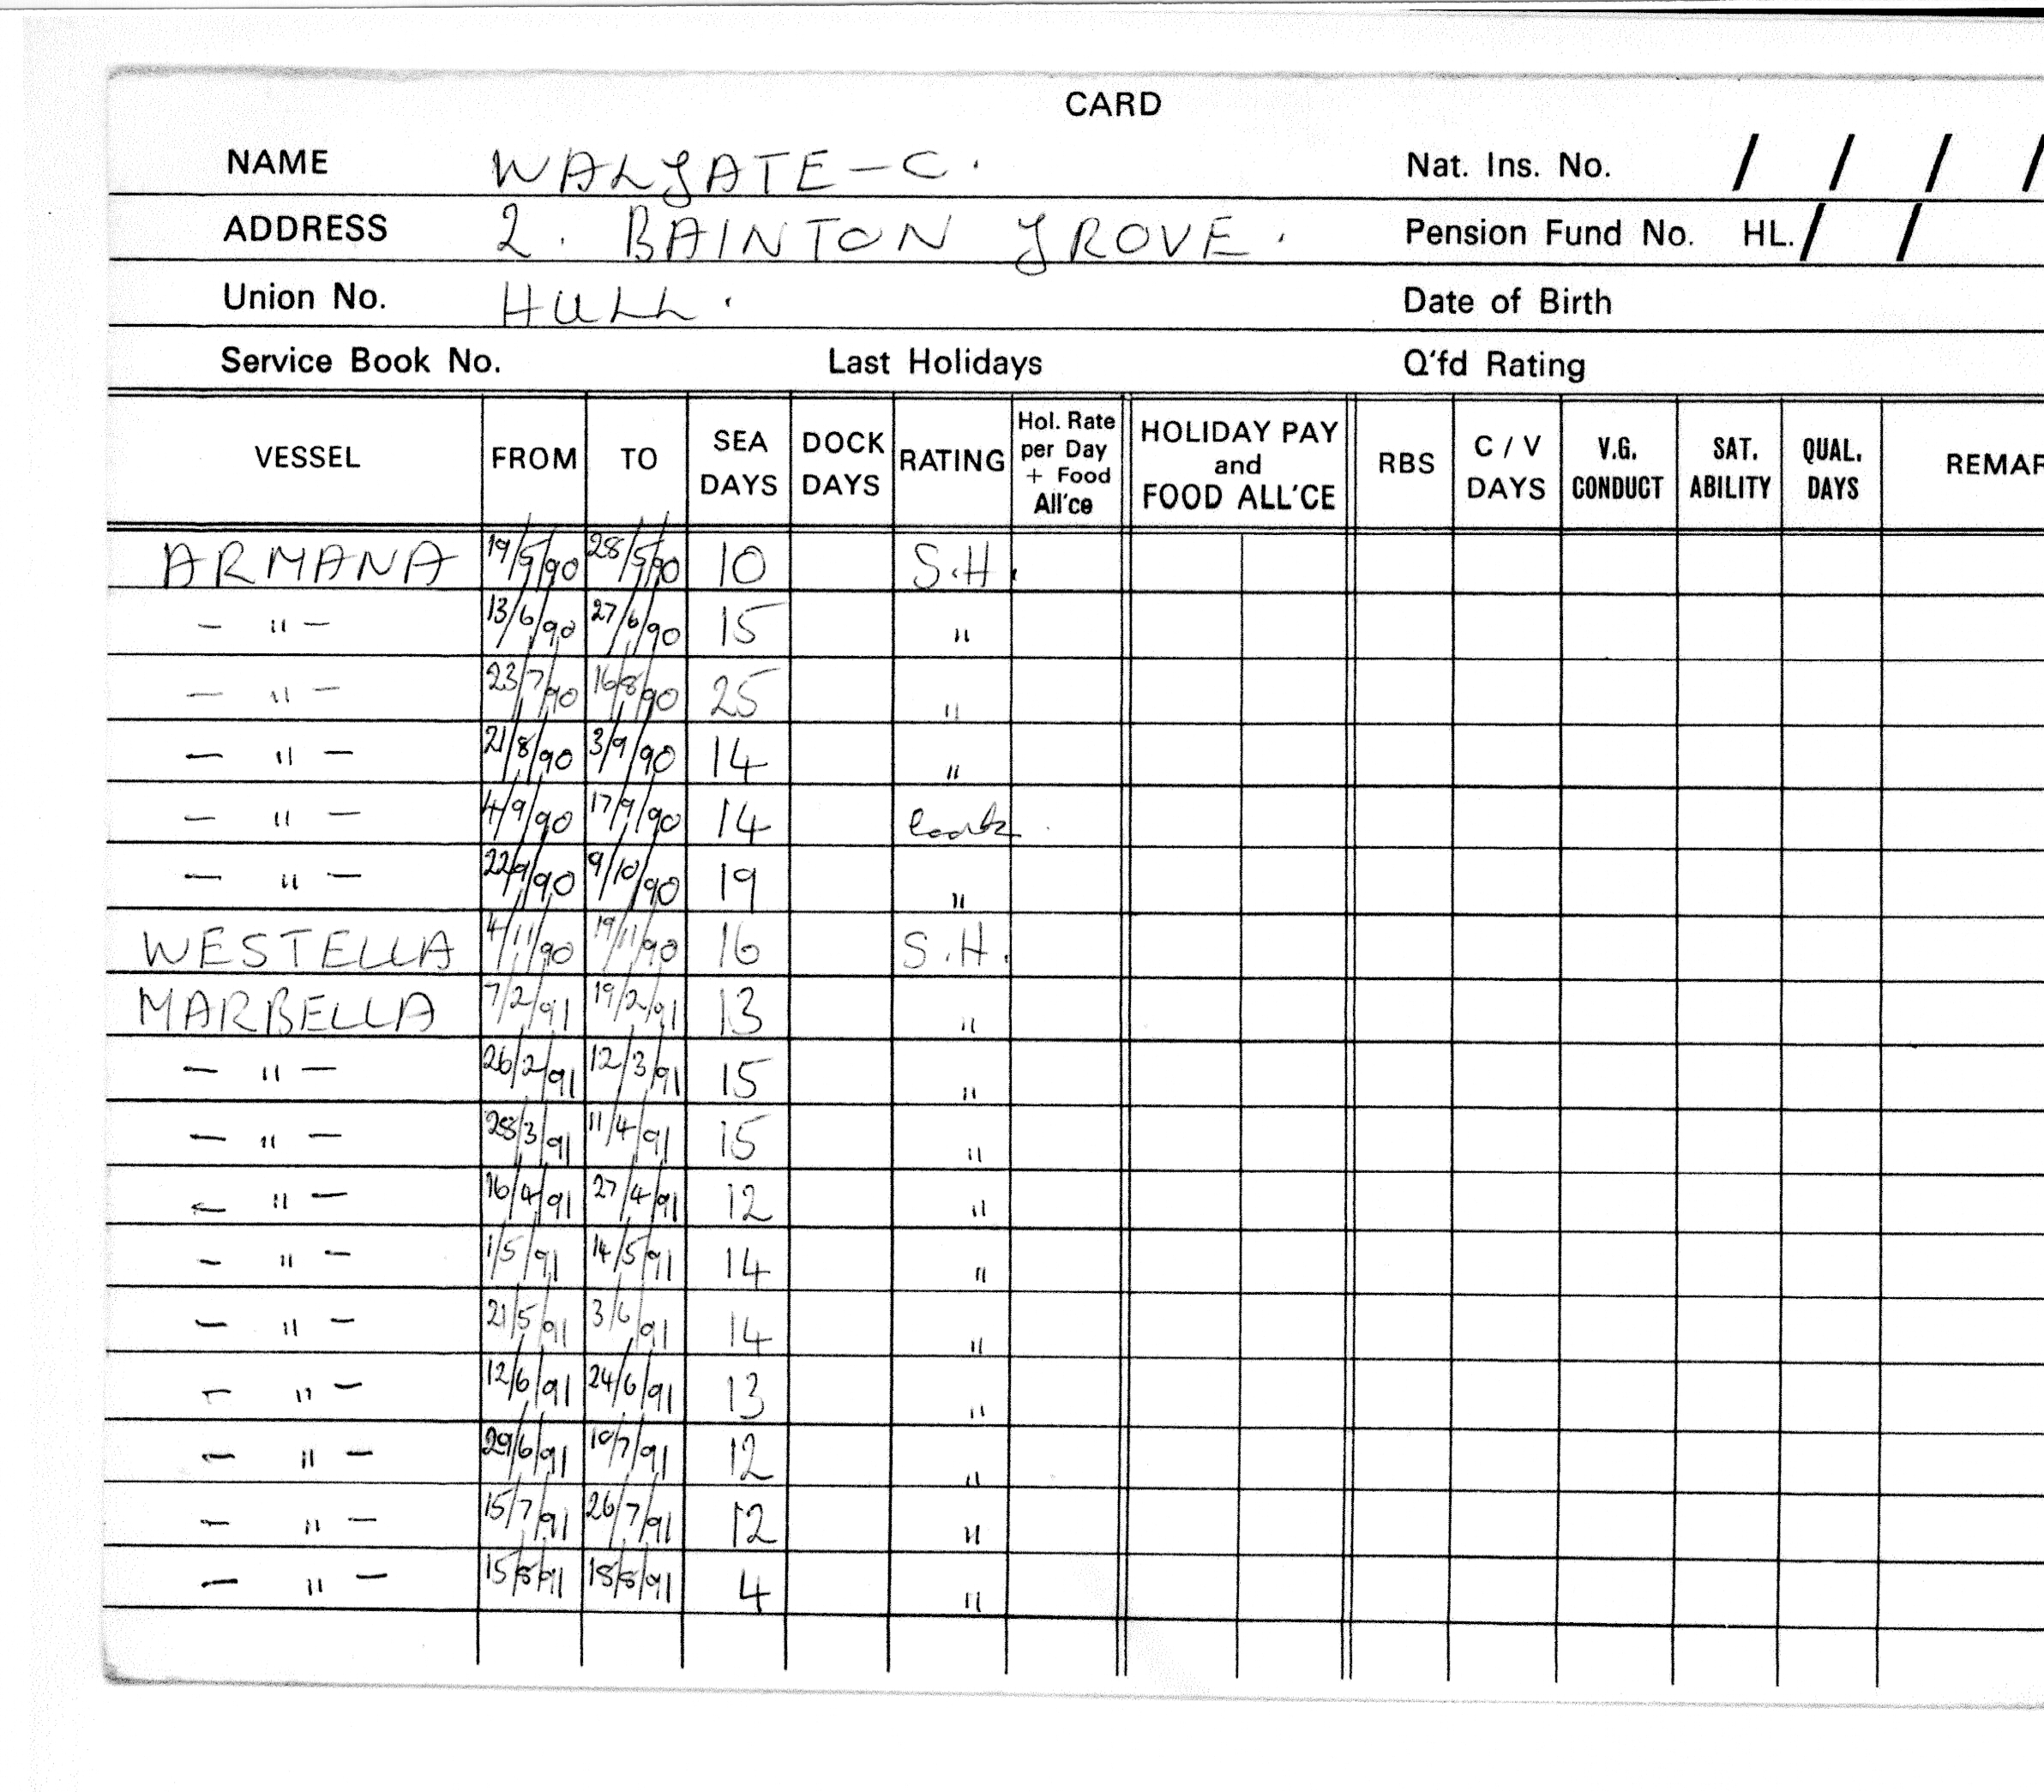 CARD
NAME WALGATE - C. Nat. Ins. No. / / / /
ADDRESS 2. BAINTON GROVE. Pension Fund No. HL. / /
Union No. HULL. Date of Birth
Service Book No. Last Holidays Q'fd Rating
VESSEL FROM TO SEA DAYS DOCK DAYS RATING Hol. Rate per Day + Food All'ce HOLIDAY PAY and FOOD ALL'CE RBS C / V DAYS V.G. CONDUCT SAT. ABILITY QUAL. DAYS REMAR
ARMANA 19/5/90 28/5/90 10 S.H.
— " — 13/6/90 27/6/90 15 "
— " — 23/7/90 16/8/90 25 "
— " — 21/8/90 3/9/90 14 "
— " — 4/9/90 17/9/90 14 Cook
— " — 22/9/90 9/10/90 19 "
WESTELLA 4/11/90 19/11/90 16 S.H.
MARBELLA 7/2/91 19/2/91 13 "
— " — 26/2/91 12/3/91 15 "
— " — 28/3/91 11/4/91 15 "
— " — 16/4/91 27/4/91 12 "
— " — 1/5/91 14/5/91 14 "
— " — 21/5/91 3/6/91 14 "
— " — 12/6/91 24/6/91 13 "
— " — 29/6/91 10/7/91 12 "
— " — 15/7/91 26/7/91 12 "
— " — 15/8/91 18/8/91 4 "